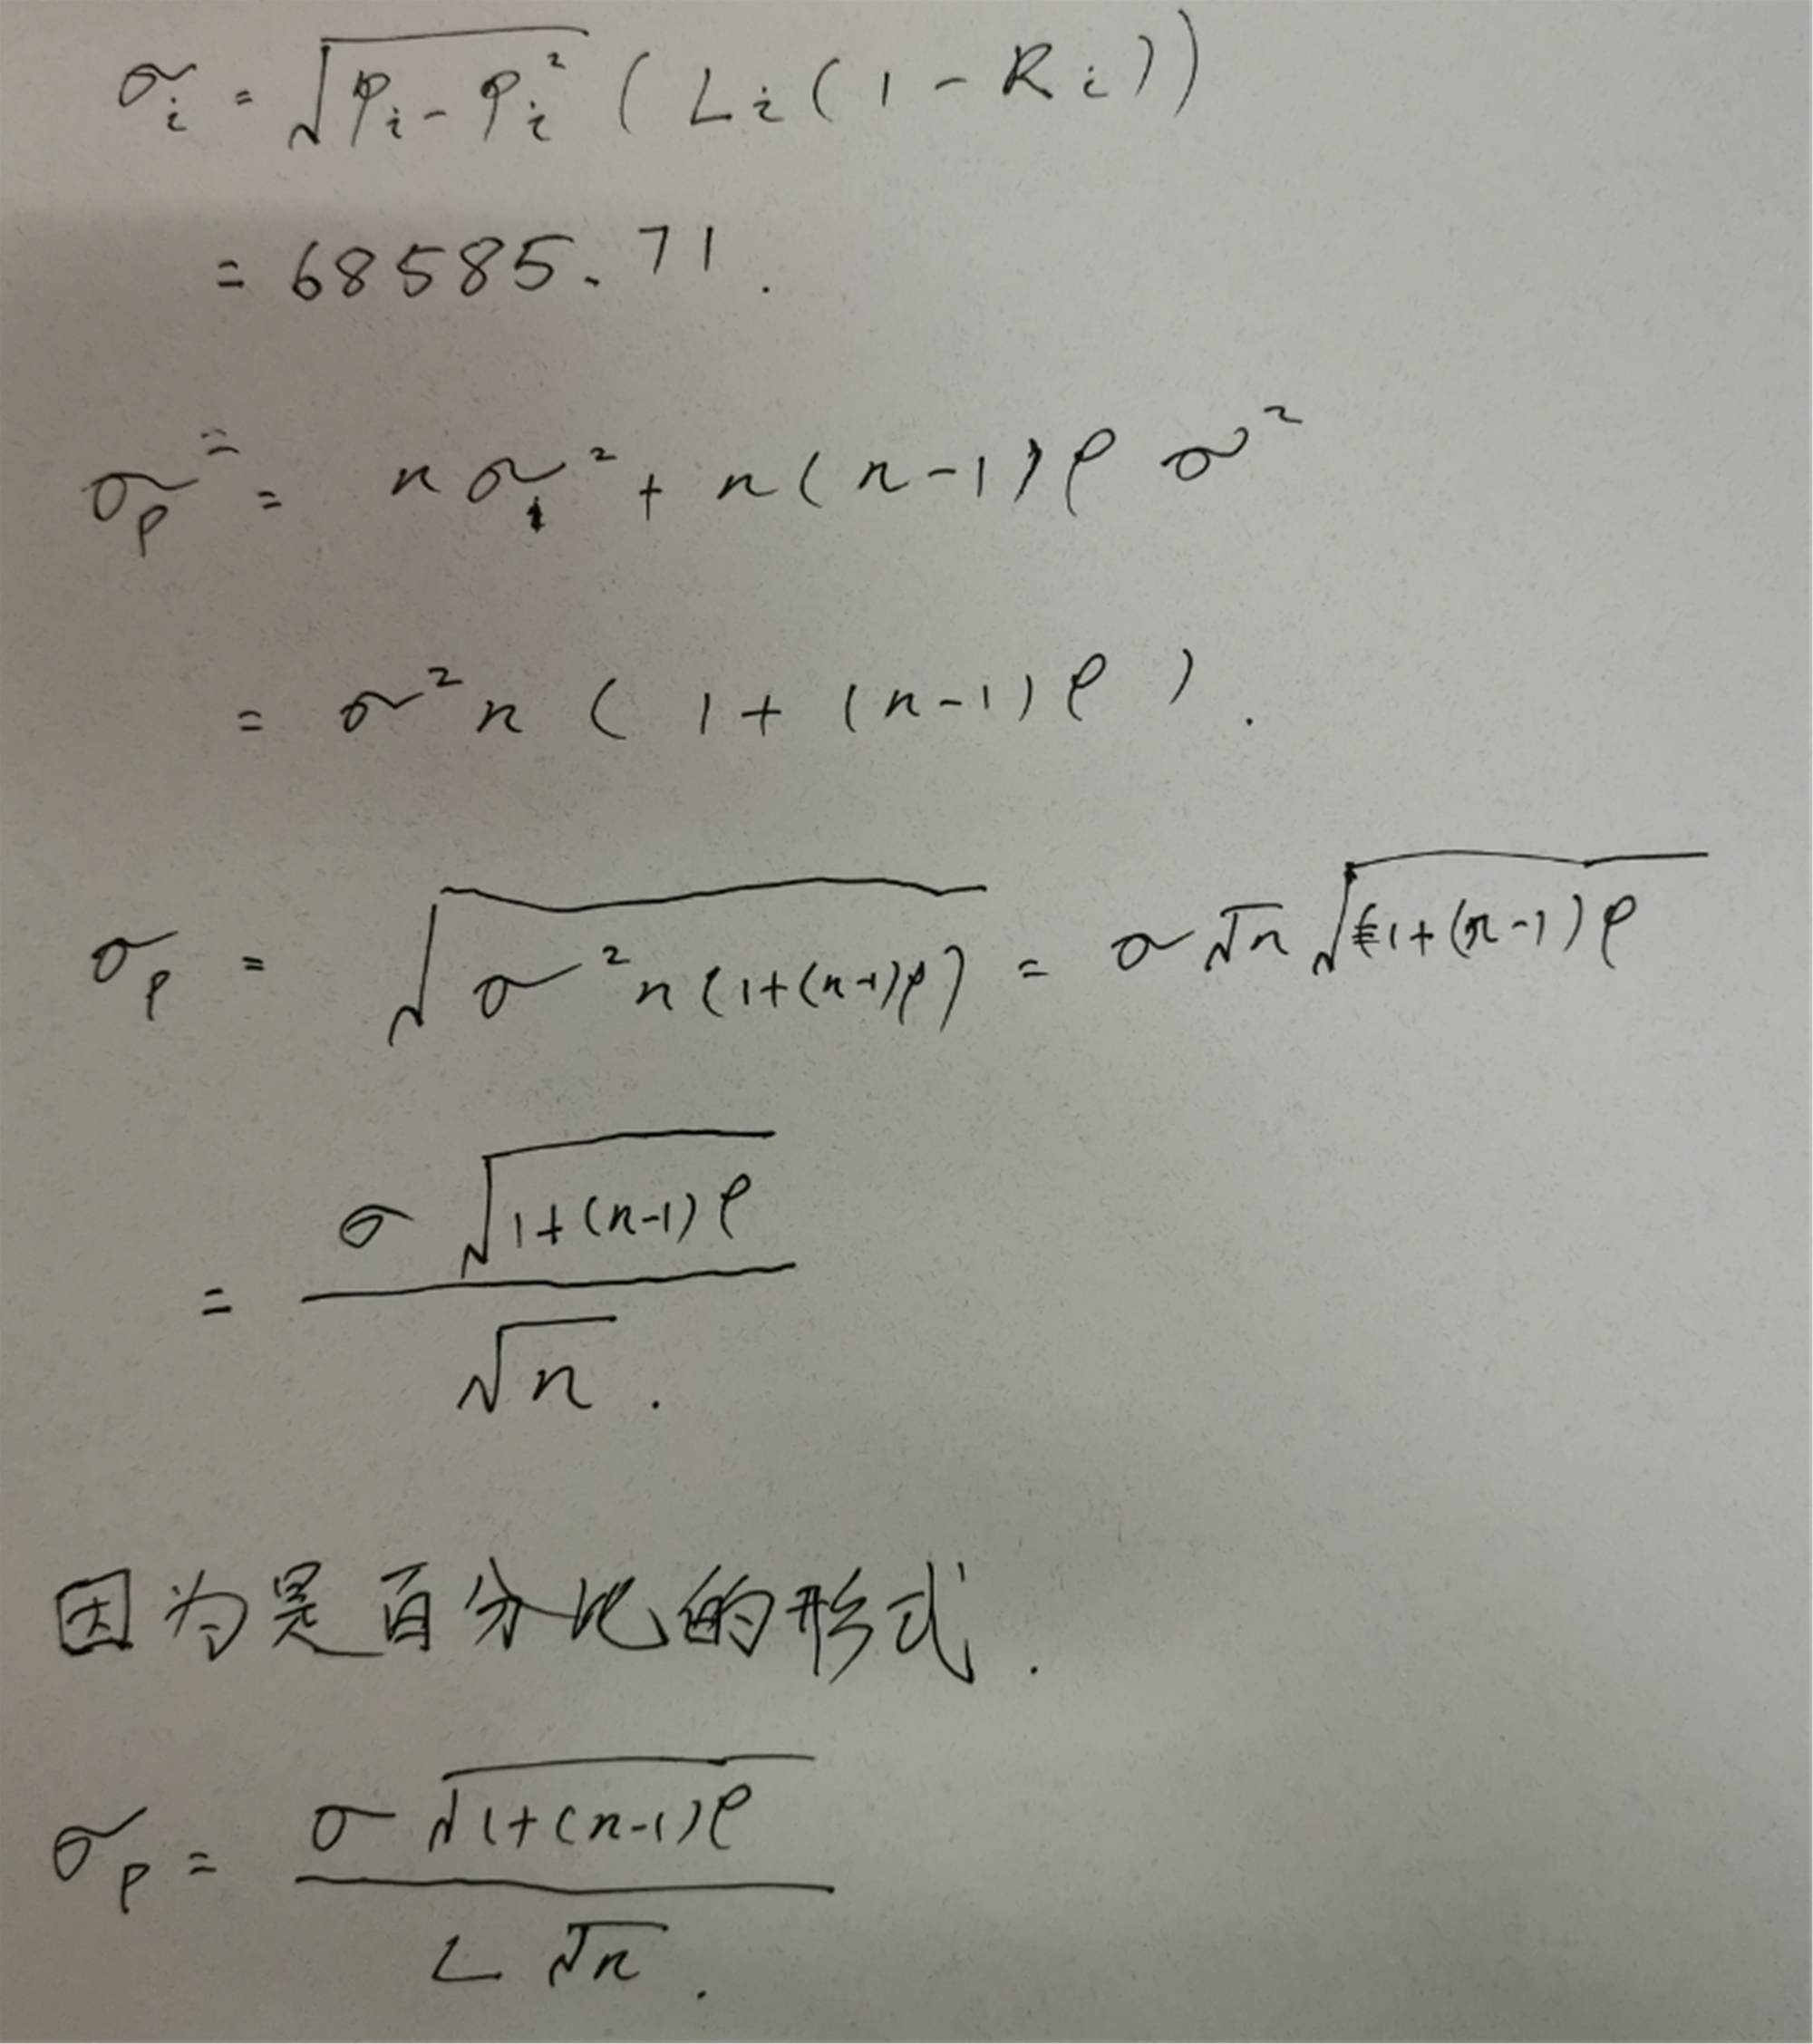 σᵢ = √(pᵢ - pᵢ²) (Lᵢ(1 - Rᵢ))
= 68585.71.
σₚ² = nσ₁² + n(n-1)ρσ²
= σ²n (1 + (n-1)ρ).
σₚ = √(σ²n(1+(n-1)ρ)) = σ√n √(1+(n-1)ρ)
= σ√(1+(n-1)ρ) / √n.
因为是百分比的形式.
σₚ = σ√(1+(n-1)ρ) / L√n.